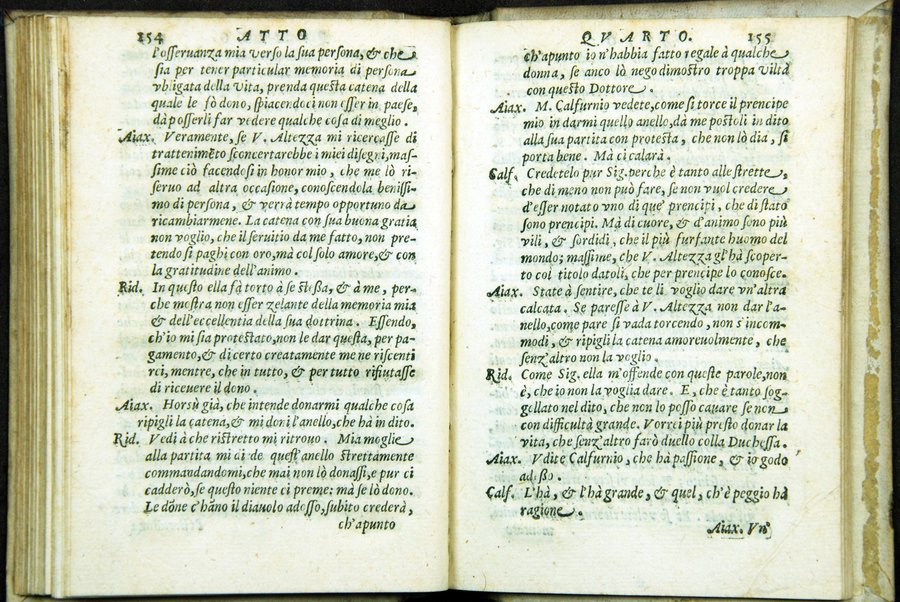 154 ATTO
l'osseruanza mia verso la sua persona, & che
sia per tener particular memoria di persona
vbligata della Vita, prenda questa catena della
quale le fò dono, spiacendoci non esser in paese,
dà posserli far vedere qualche cosa di meglio.
Aiax. Veramente, se V. Altezza mi ricercasse di
trattenimẽto sconcertarebbe i miei disegni, mas-
sime ciò facendosi in honor mio, che me lò ri-
seruo ad altra occasione, conoscendola benissi-
mo di persona, & verrà tempo opportuno da
ricambiarmene. La catena con sua buona gratia
non voglio, che il seruitio da me fatto, non pre-
tendo si paghi con oro, mà col solo amore, & con
la gratitudine dell'animo.
Rid. In questo ella fà torto à se stessa, & à me, per-
che mostra non esser zelante della memoria mia
& dell'eccellentia della sua dottrina. Essendo,
ch'io mi sia protestato, non le dar questa, per pa-
gamento, & di certo creatamente me ne riscenti
rci, mentre, che in tutto, & per tutto rifiutasse
di riceuere il dono.
Aiax. Horsù già, che intende donarmi qualche cosa
ripigli la catena, & mi doni l'anello, che hà in dito.
Rid. Vedi à che ristretto mi ritrouo. Mia moglie
alla partita mi di de quest'anello strettamente
commandandomi, che mai non lò donassi, e pur ci
cadderò, se questo niente ci preme: mà se lò dono.
Le dõne c'hãno il diauolo adosso, subito crederà,
ch'apunto
QVARTO. 155
ch'apunto io n'habbia fatto regale à qualche
donna, se anco lò nego dimostro troppa viltà
con questo Dottore.
Aiax. M. Calfurnio vedete, come si torce il prencipe
mio in darmi quello anello, dà me postoli in dito
alla sua partita con protesta, che non lò dia, si
porta bene. Mà ci calarà.
Calf. Credetelo pur Sig. perche è tanto alle strette,
che di meno non può fare, se non vuol credere
d'esser notato vno di que' prencipi, che di stato
sono prencipi. Mà di cuore, & d'animo sono più
vili, & sordidi, che il più furfante huomo del
mondo; massime, che V. Altezza gl'hà scoper-
to col titolo datoli, che per prencipe lo conosce.
Aiax. State à sentire, che te li voglio dare vn'altra
calcata. Se paresse à V. Altezza non dar l'a-
nello, come pare si vada torcendo, non s'incom-
modi, & ripigli la catena amoreuolmente, che
senz'altro non la voglio.
Rid. Come Sig. ella m'offende con queste parole, non
è, che io non la voglia dare. E, che è tanto sog-
gellato nel dito, che non lo posso cauare se non
con difficultà grande. Vorrei più presto donar la
vita, che senz'altro farò duello colla Duchessa.
Aiax. Vdite Calfurnio, che hà passione, & io godo
adesso.
Calf. L'hà, & l'hà grande, & quel, ch'è peggio hà
ragione.
Aiax. Vn'